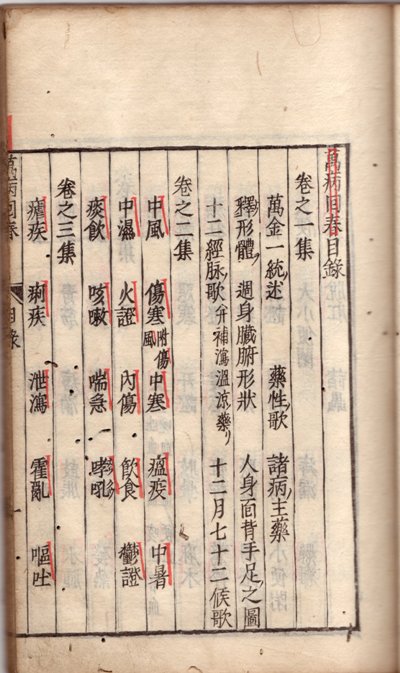 萬病回春目錄
卷之一集
萬金一統述 藥性歌 諸病主藥
釋形體 週身臟腑形狀 人身面背手足之圖
十二經脉歌分補瀉溫涼藥 十二月七十二候歌
卷之二集
中風 傷寒附傷風 中寒 瘟疫 中暑
中濕 火證 內傷 飲食 鬱證
痰飲 咳嗽 喘急 哮吼
卷之三集
瘧疾 痢疾 泄瀉 霍亂 嘔吐
萬病回春 目錄